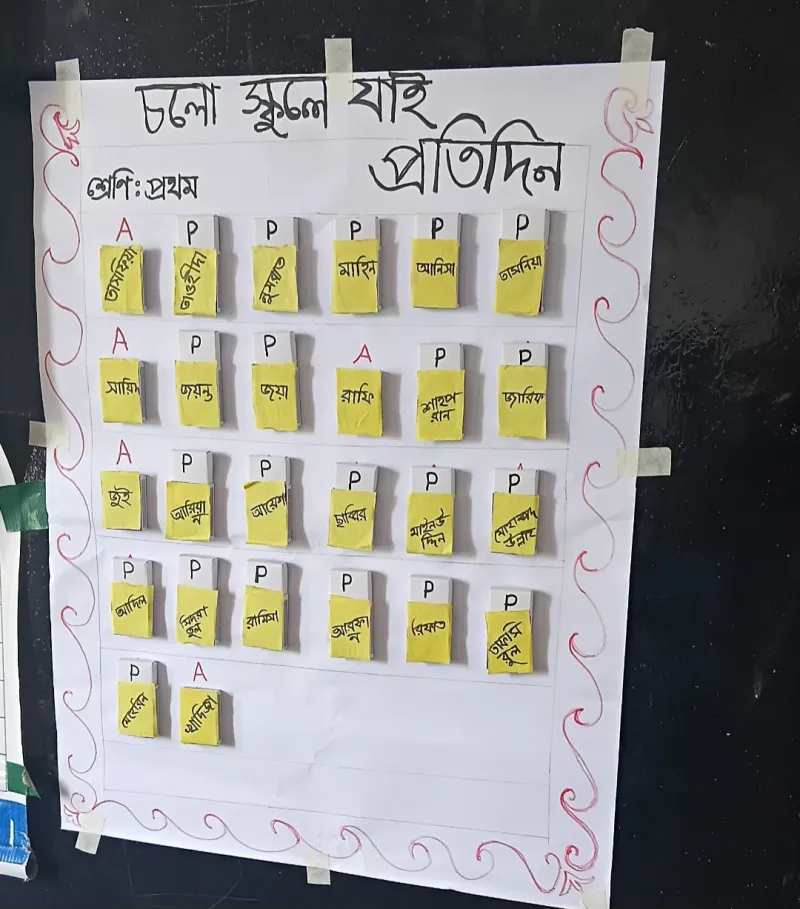 চলো স্কুলে যাই
প্রতিদিন
শ্রেণি: প্রথম
A P P P P P
তাসফিয়া তাওহীদা নুসরাত মাহিন আনিসা তাসনিয়া
A P P A P P
সায়িদ জয়ন্ত জয়া রাফি শাহপরান জারিফ
A P P P P P
জুই আরিয়ান আয়েশা ছাব্বির মাইনউদ্দিন মোহাম্মদ উল্লাহ
P P P P P P
আদিল সিদরাতুল রামিসা আরফান রিফাত তাফসিরুল
P A
মেহেরিন খাদিজা